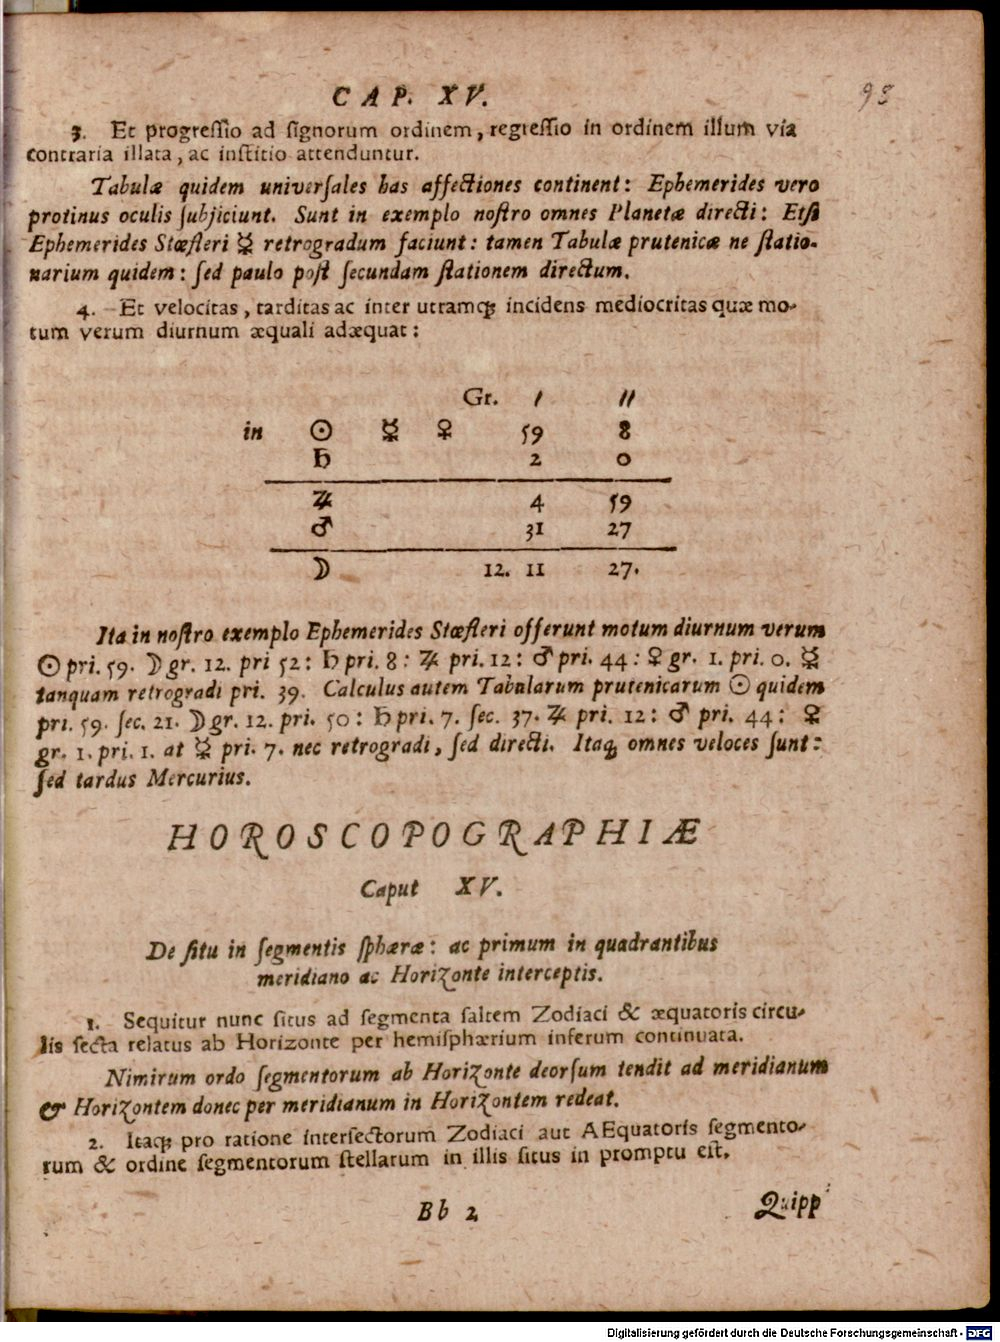 CAP. XV.
98
3. Et progreſſio ad ſignorum ordinem, regreſſio in ordinem illum via
contraria illata, ac inſtitio attenduntur.
Tabulæ quidem univerſales has affectiones continent: Ephemerides vero
protinus oculis ſubjiciunt. Sunt in exemplo noſtro omnes Planetæ directi: Etſi
Ephemerides Stœfleri ☿ retrogradum faciunt: tamen Tabulæ prutenicæ ne ſtatio-
narium quidem: ſed paulo poſt ſecundam ſtationem directum.
4. Et velocitas, tarditas ac inter utramq; incidens mediocritas quæ mo-
tum verum diurnum æquali adæquat:
Gr. ′ ″
in ☉ ☿ ♀ 59 8
♄ 2 0
♃ 4 59
♂ 31 27
☽ 12. 11 27.
Ita in noſtro exemplo Ephemerides Stœfleri offerunt motum diurnum verum
☉ pri. 59. ☽ gr. 12. pri 52: ♄ pri. 8: ♃ pri. 12: ♂ pri. 44: ♀ gr. 1. pri. 0. ☿
tanquam retrogradi pri. 39. Calculus autem Tabularum prutenicarum ☉ quidem
pri. 59. ſec. 21. ☽ gr. 12. pri. 50: ♄ pri. 7. ſec. 37. ♃ pri. 12: ♂ pri. 44: ♀
gr. 1. pri. 1. at ☿ pri. 7. nec retrogradi, ſed directi. Itaq; omnes veloces ſunt:
ſed tardus Mercurius.
HOROSCOPOGRAPHIÆ
Caput XV.
De ſitu in ſegmentis ſphæræ: ac primum in quadrantibus
meridiano ac Horizonte interceptis.
1. Sequitur nunc ſitus ad ſegmenta ſaltem Zodiaci & æquatoris circu-
lis ſecta relatus ab Horizonte per hemiſphærium inferum continuata.
Nimirum ordo ſegmentorum ab Horizonte deorſum tendit ad meridianum
& Horizontem donec per meridianum in Horizontem redeat.
2. Itaq; pro ratione interſectorum Zodiaci aut AEquatoris ſegmento-
rum & ordine ſegmentorum ſtellarum in illis ſitus in promptu eſt.
Bb 2
Quipp
Digitalisierung gefördert durch die Deutsche Forschungsgemeinschaft - DFG